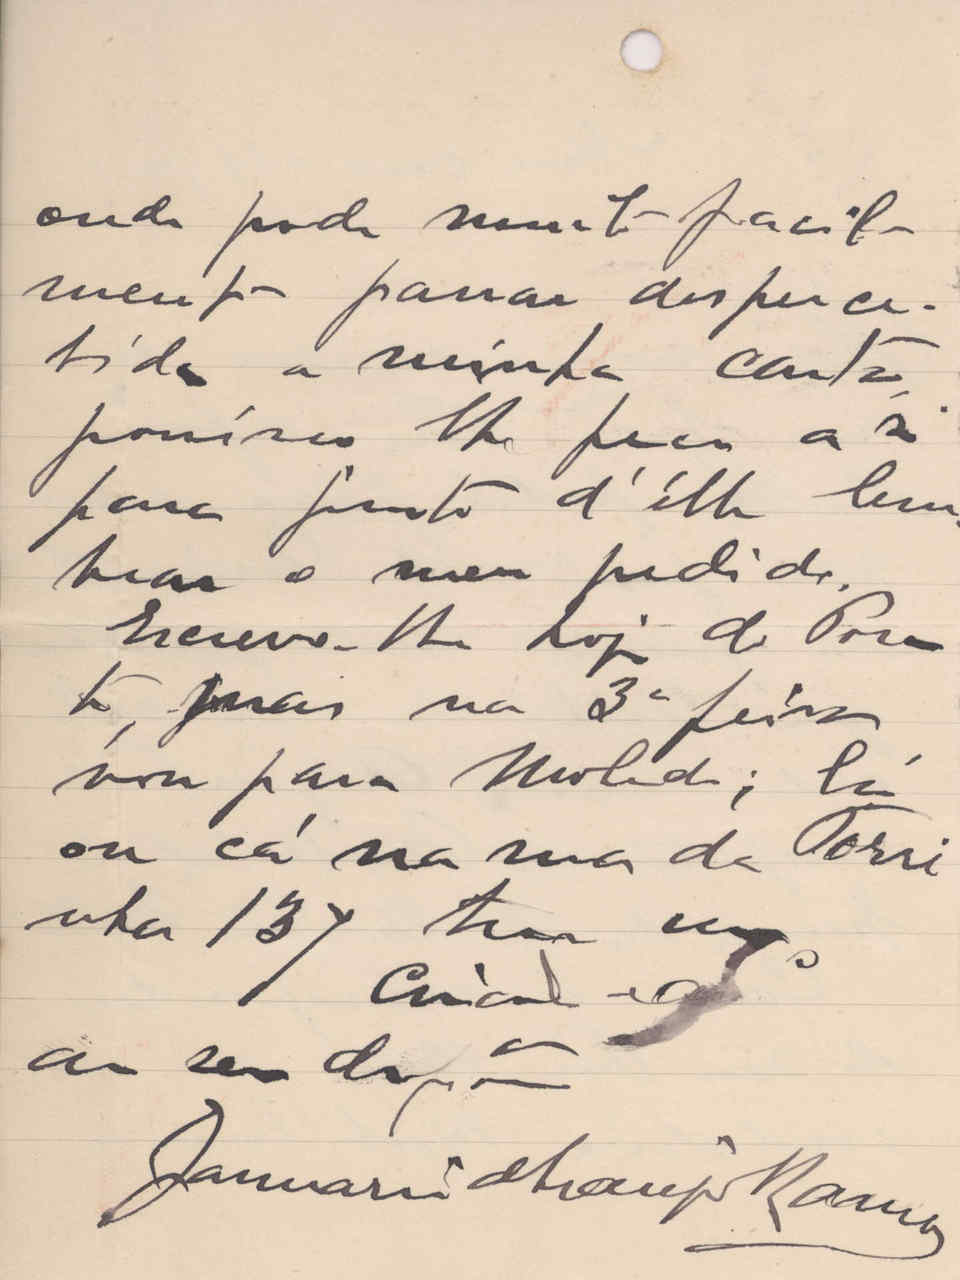 onde pode muito facil-
mente passar desperce-
bida a minha carta,
por isso lhe peço a si
para junto d'élle lem-
brar o meu pedido.
Escrevo-lhe hoje do Por-
to, mas na 3ª feira
vou para Moledo; lá
ou cá na rua da Torri
nha 137 tem um
Criado
ao seu dispôr
Januario d'Araujo Ramos